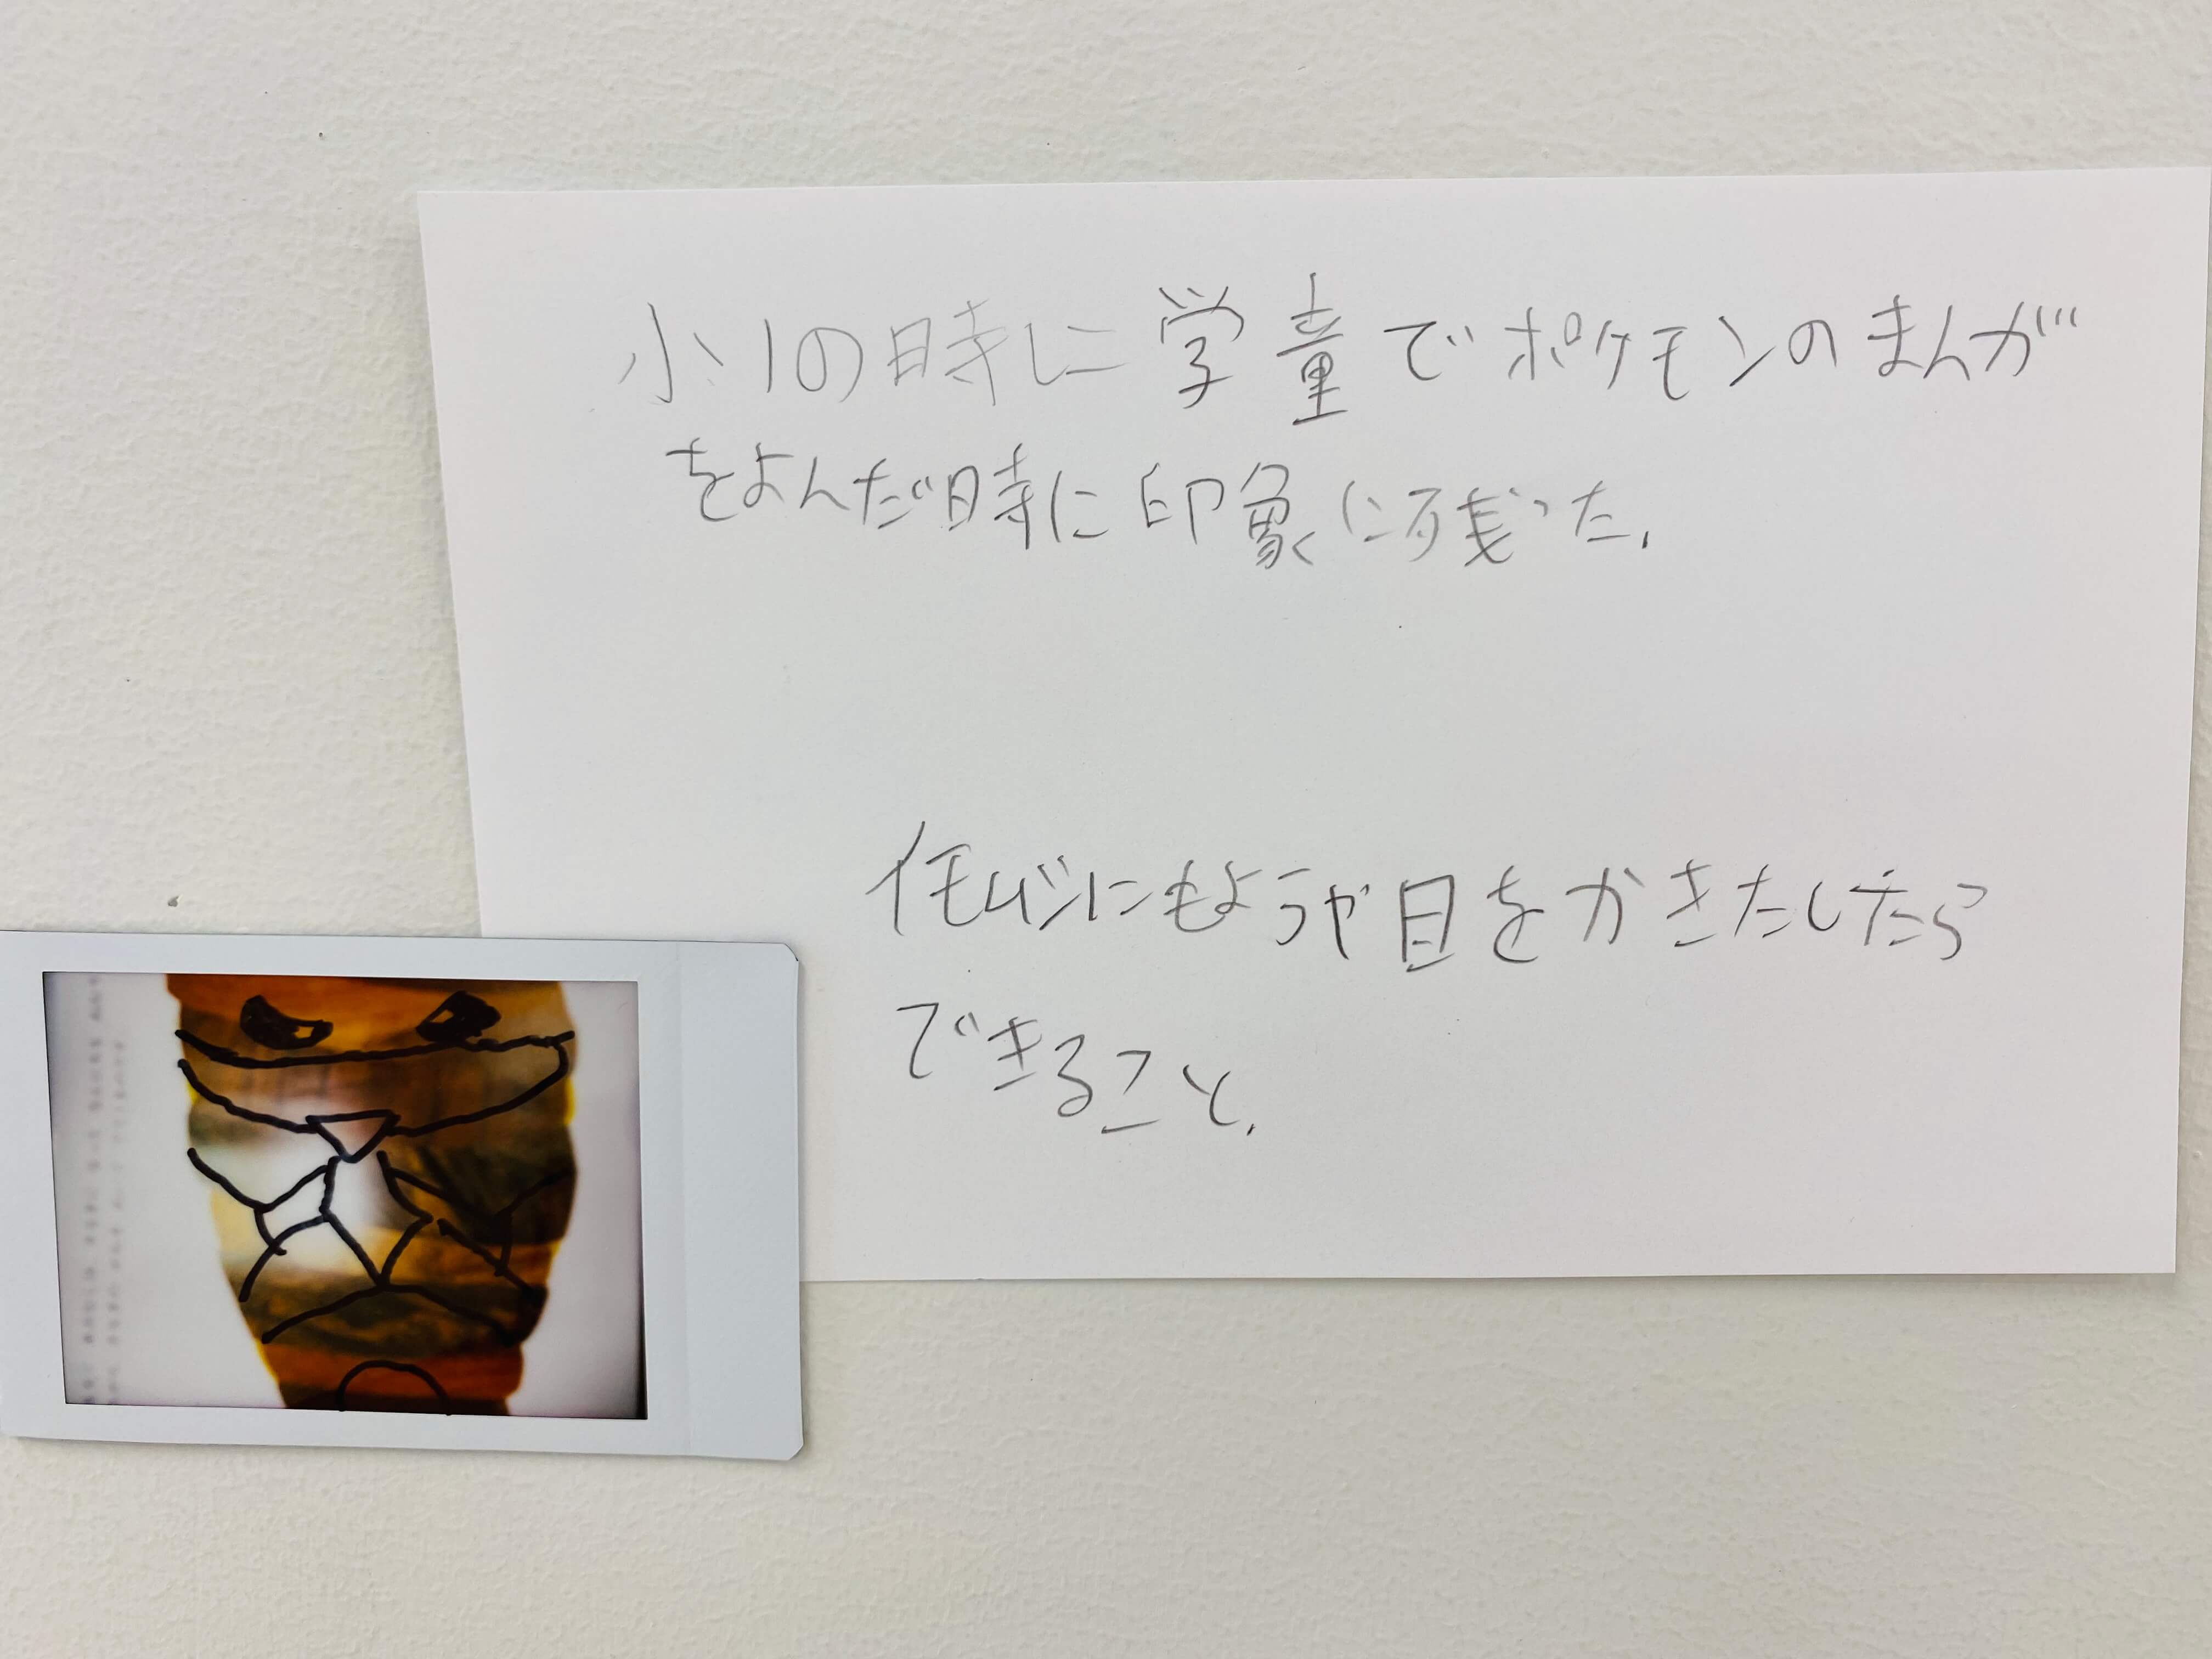 小1の時に学童でポケモンのまんが
をよんだ時に印象に残った.
イモムシにもようや目をかきたしたら
できること.